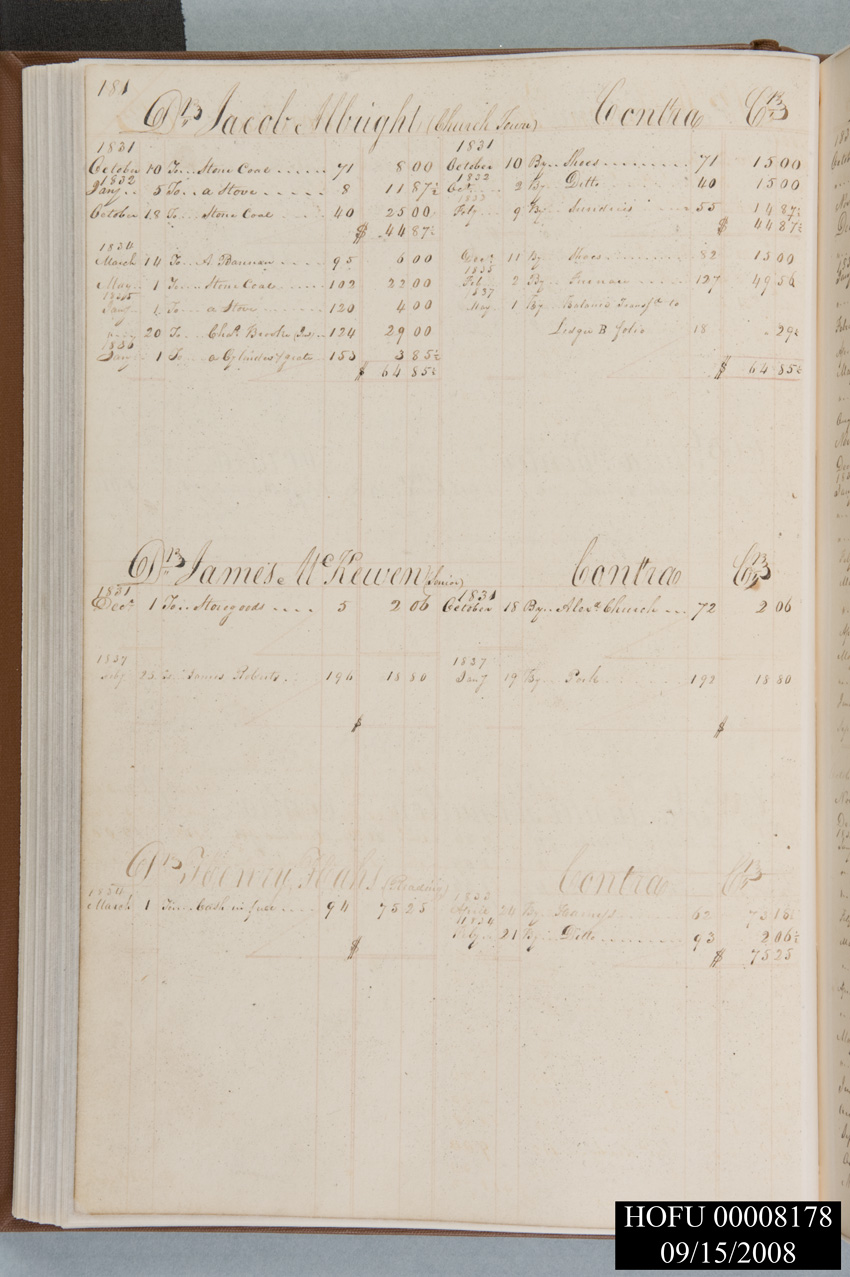 181
Dr Jacob Albright (Church Town) Contra Cr
1831 1831
October 10 To Stone Coal 71 8 00 October 10 By Shoes 71 15 00
1832 1832
Jany 5 To a Stove 8 11 87½ Oct. 2 By Ditto 40 15 00
1833
October 18 To Stone Coal 40 25 00 Feby 9 By Sundries 55 14 87½
$ 44 87½ $ 44 87½
1834
March 14 To A. Bannan 95 6 00 Decr 11 By Shoes 82 15 00
1835
May 1 To Stone Coal 102 22 00 Feb 2 By Furnace 127 49 56
1835 1837
Jany 1 To a Stove 120 4 00 May 1 By Ballance Transfd to
20 To Chas Brooke (Jnr) 124 29 00 Ledger B folio 18 29½
1836
Jany 1 To a Cylinder grate 153 3 85½
$ 64 85½ $ 64 85½
Dr James McKewen (Senior) Contra Cr
1831 1831
Decr 1 To Storegoods 5 2 06 October 18 By Alexr Church 72 2 06
1837 1837
Feby 23 To James Roberts 196 18 80 Jany 19 By Pork 192 18 80
$ $
Dr Henry Hahs (Reading) Contra Cr
1834 1833
March 1 To Cash in full 94 75 25 24 By 62 73 18½
1834
Feby 21 By Ditto 93 2 06½
$ $ 75 25
HOFU 00008178
09/15/2008